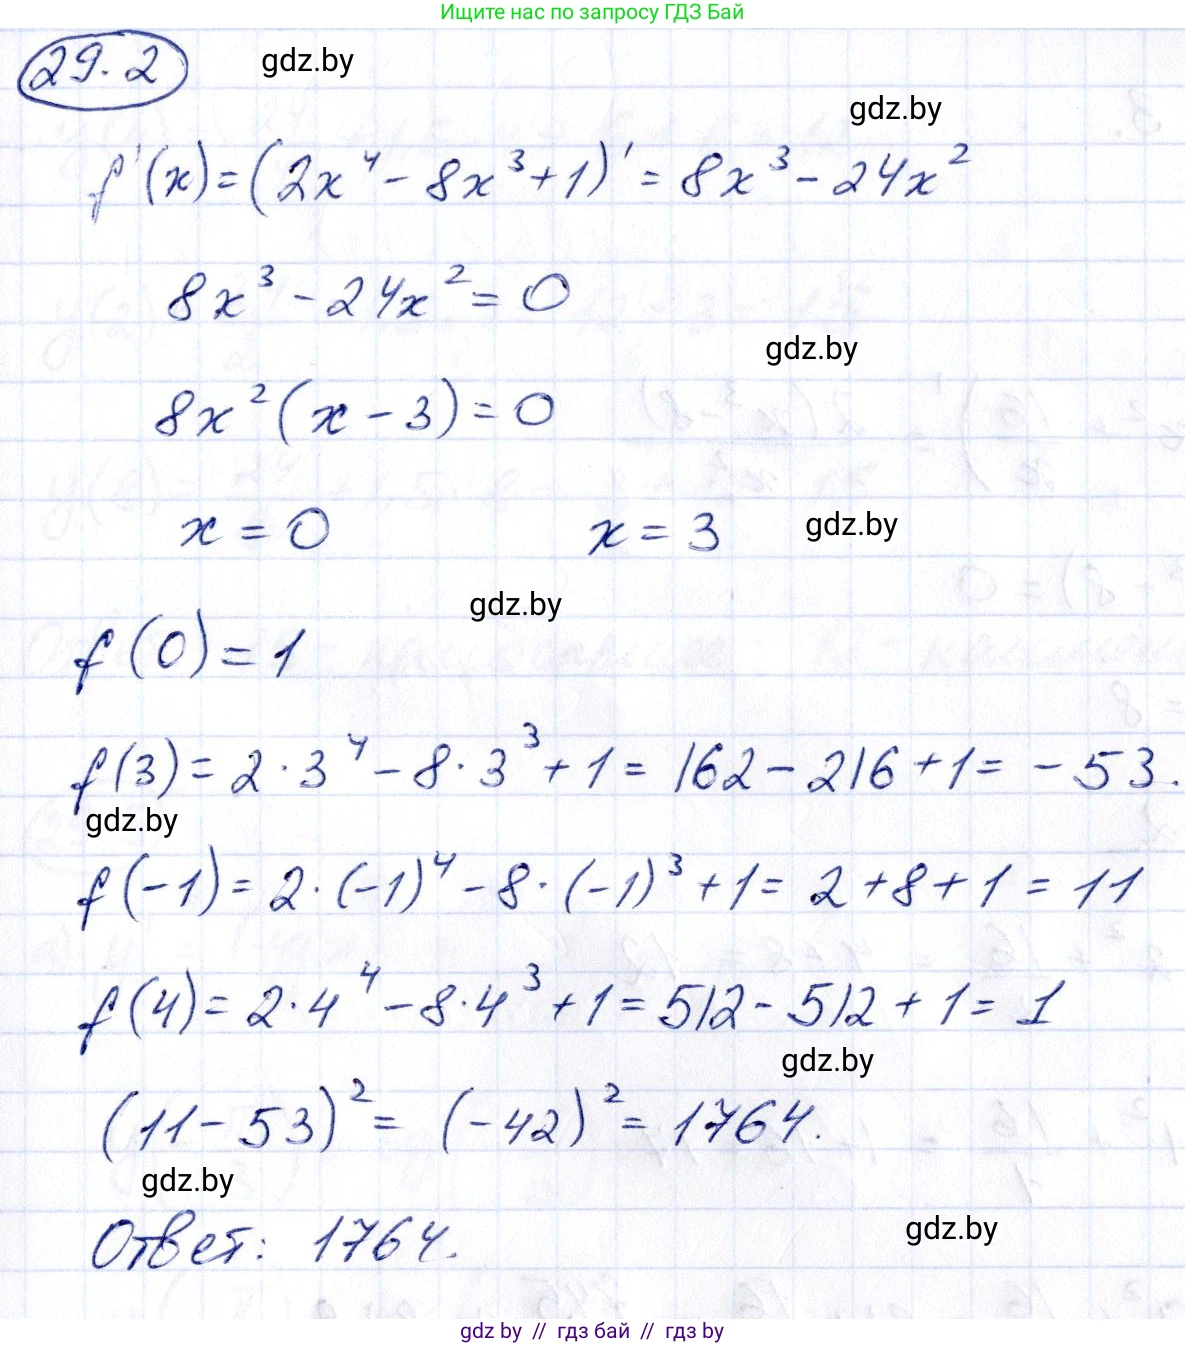 Ищите нас по запросу ГДЗ Бай
29.2
gdz.by
gdz.by
f'(x) = (2x⁴ - 8x³ + 1)' = 8x³ - 24x²
8x³ - 24x² = 0
gdz.by
8x² (x - 3) = 0
x = 0 x = 3 gdz.by
gdz.by
f(0) = 1
f(3) = 2 · 3⁴ - 8 · 3³ + 1 = 162 - 216 + 1 = - 53.
gdz.by
f(-1) = 2 · (-1)⁴ - 8 · (-1)³ + 1 = 2 + 8 + 1 = 11
f(4) = 2 · 4⁴ - 8 · 4³ + 1 = 512 - 512 + 1 = 1
gdz.by
(11 - 53)² = (-42)² = 1764.
gdz.by
Ответ: 1764.
gdz.by
gdz by // гдз бай // гдз by